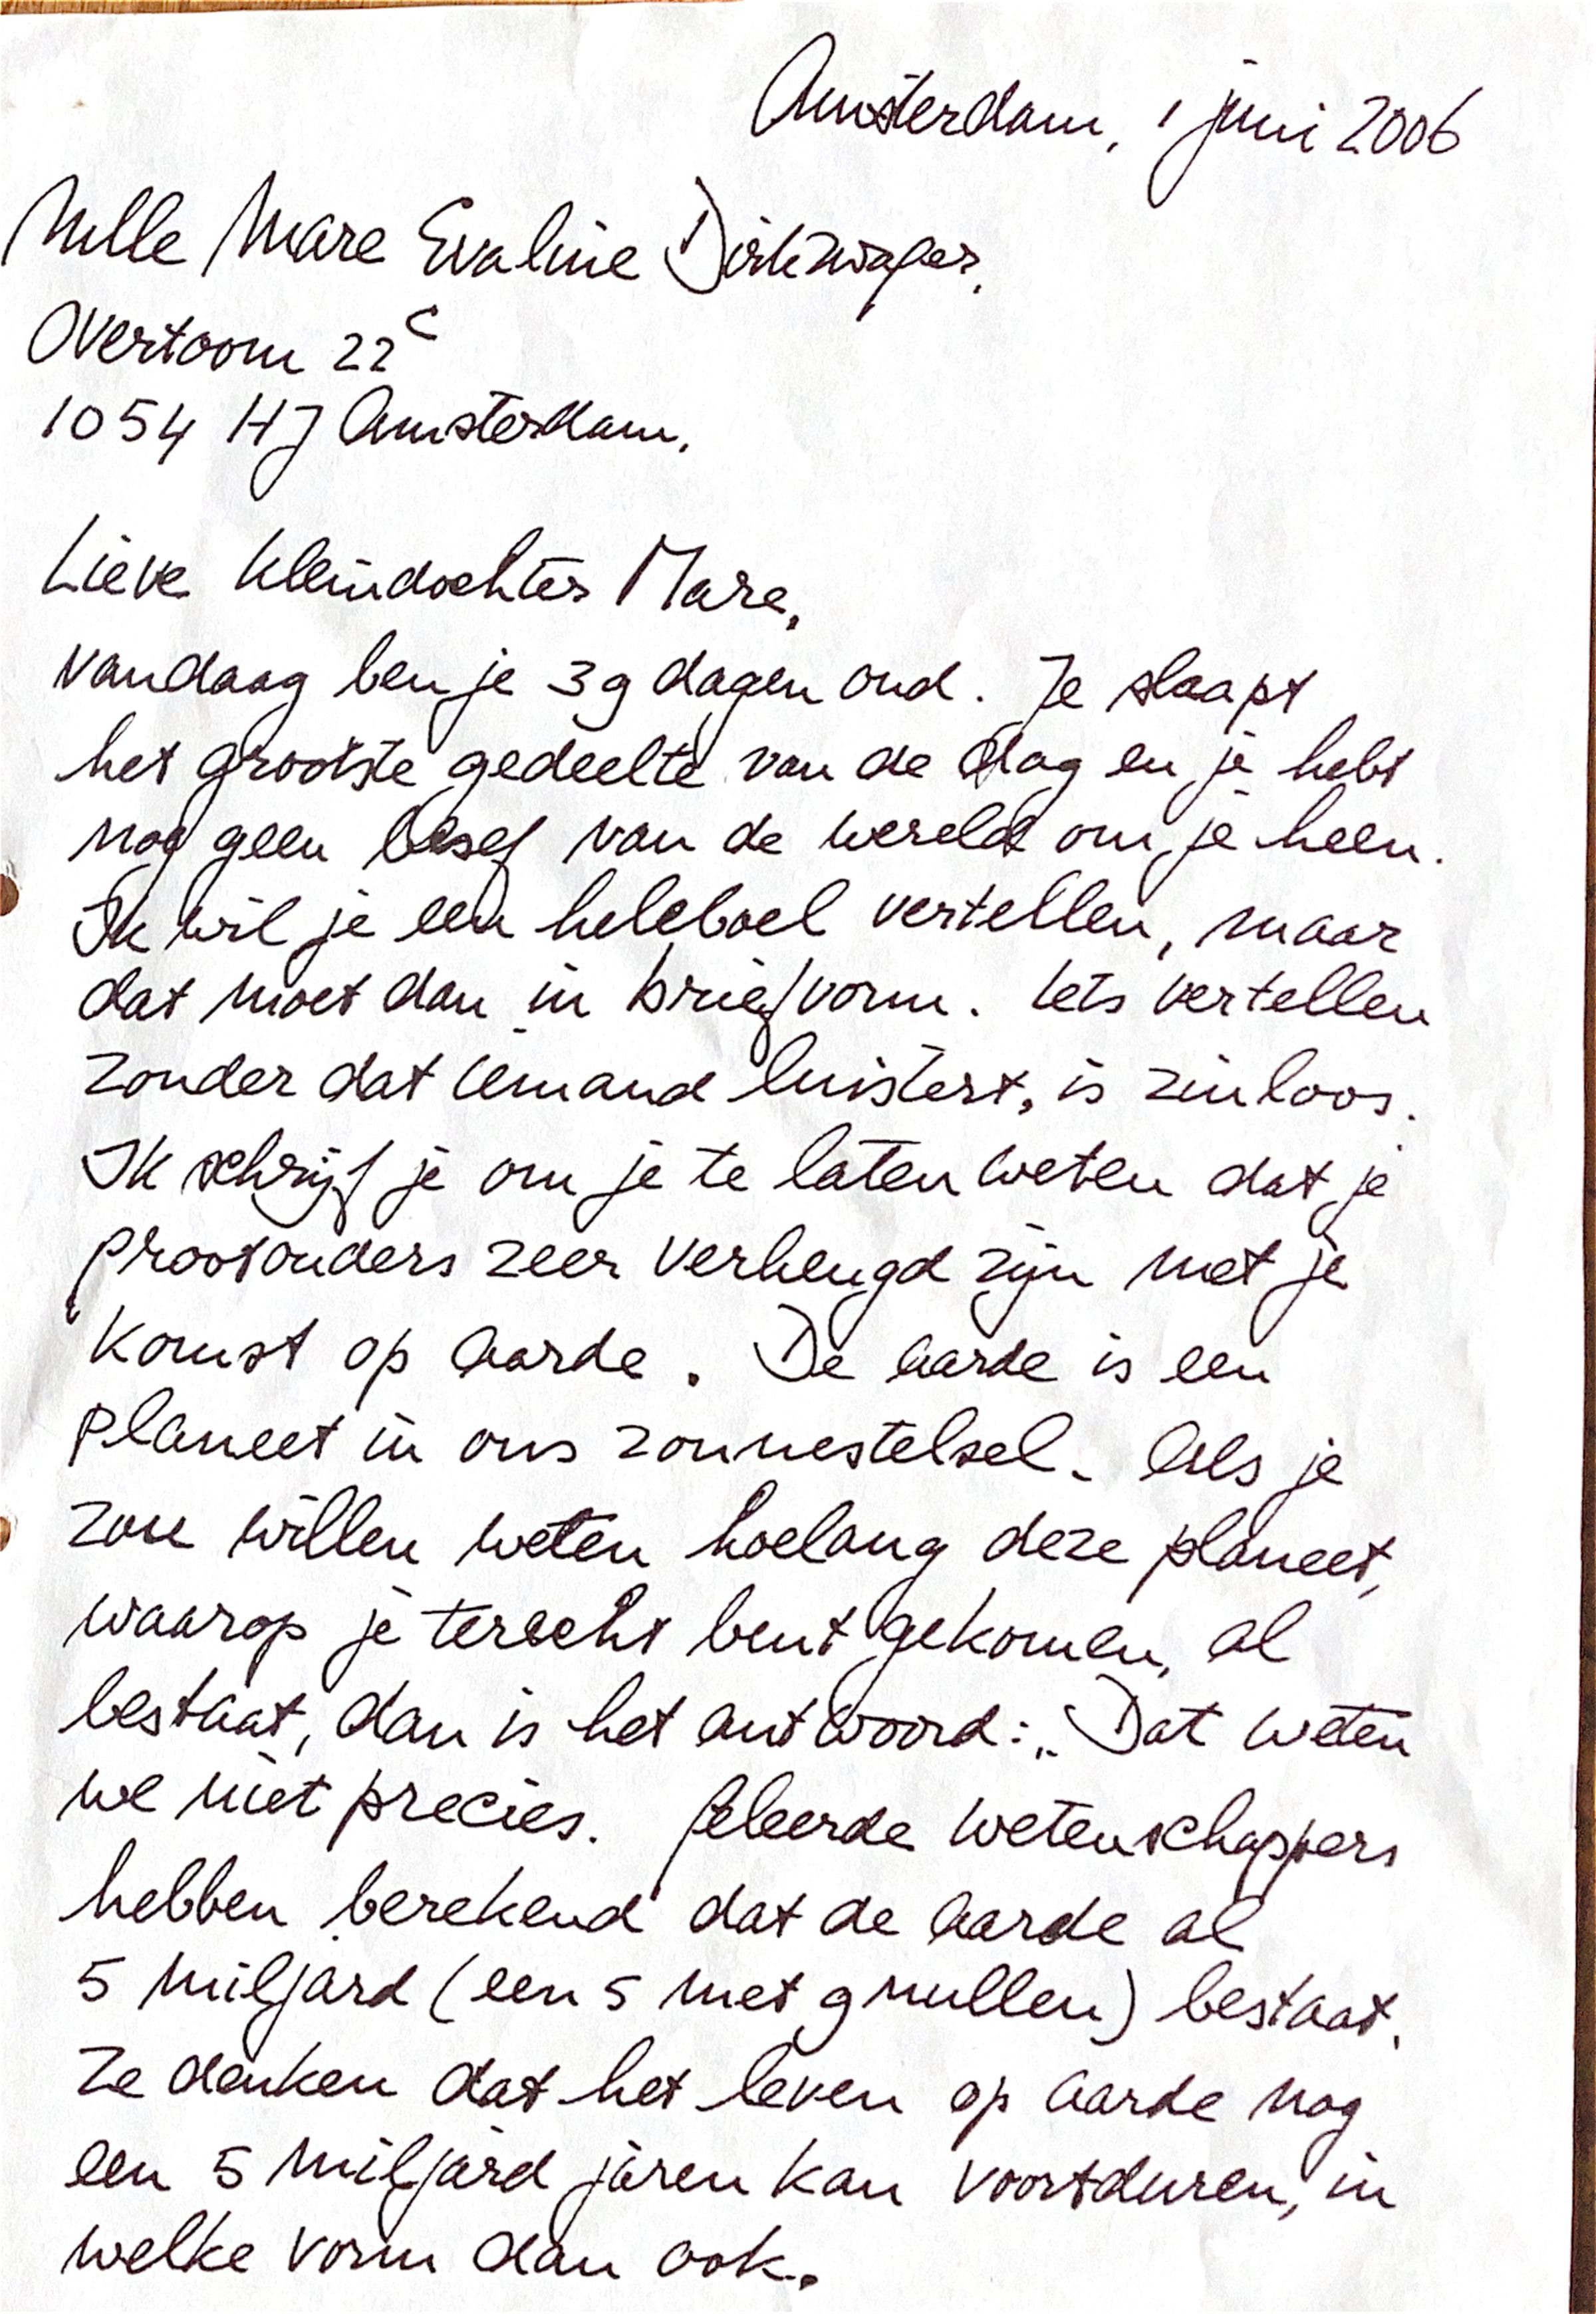 Amsterdam, 1 juni 2006
Melle Mare Evaline Dirkzwager.
Overtoom 22c
1054 HJ Amsterdam.
Lieve kleindochter Mare,
vandaag ben je 39 dagen oud. Je slaapt
het grootste gedeelte van de dag en je hebt
nog geen besef van de wereld om je heen.
Ik wil je een heleboel vertellen, maar
dat moet dan in briefvorm. Iets vertellen
zonder dat iemand luistert, is zinloos.
Ik schrijf je om je te laten weten dat je
grootouders zeer verheugd zijn met je
komst op aarde. De aarde is een
planeet in ons zonnestelsel. Als je
zou willen weten hoelang deze planeet,
waarop je terecht bent gekomen, al
bestaat, dan is het antwoord: „Dat weten
we niet precies. Geleerde wetenschappers
hebben berekend dat de aarde al
5 miljard (een 5 met 9 nullen) bestaat.
Ze denken dat het leven op aarde nog
een 5 miljard jaren kan voortduren, in
welke vorm dan ook.